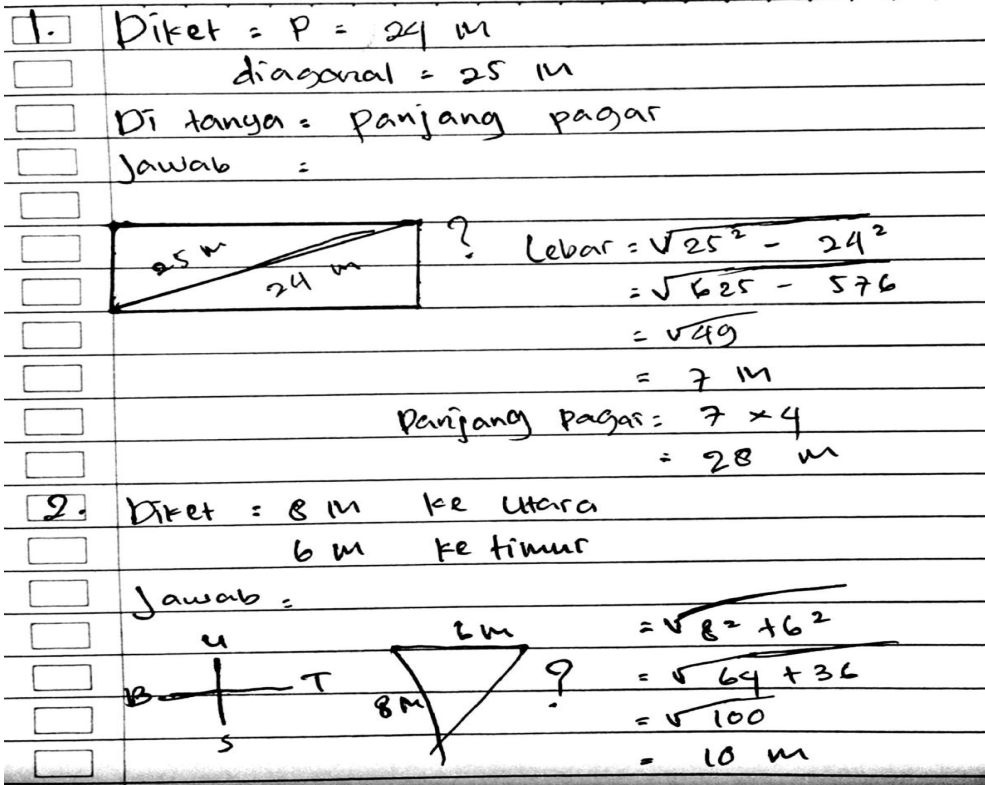 1. Diket = P = 24 m
diagonal = 25 m
Di tanya = panjang pagar
Jawab =
25 m
24 m
?
Lebar = √25² - 24²
= √625 - 576
= √49
= 7 m
Panjang pagar = 7 × 4
= 28 m
2. Diket = 8 m ke utara
6 m ke timur
Jawab =
U
B T
S
6 m
8 m
?
= √8² + 6²
= √64 + 36
= √100
= 10 m